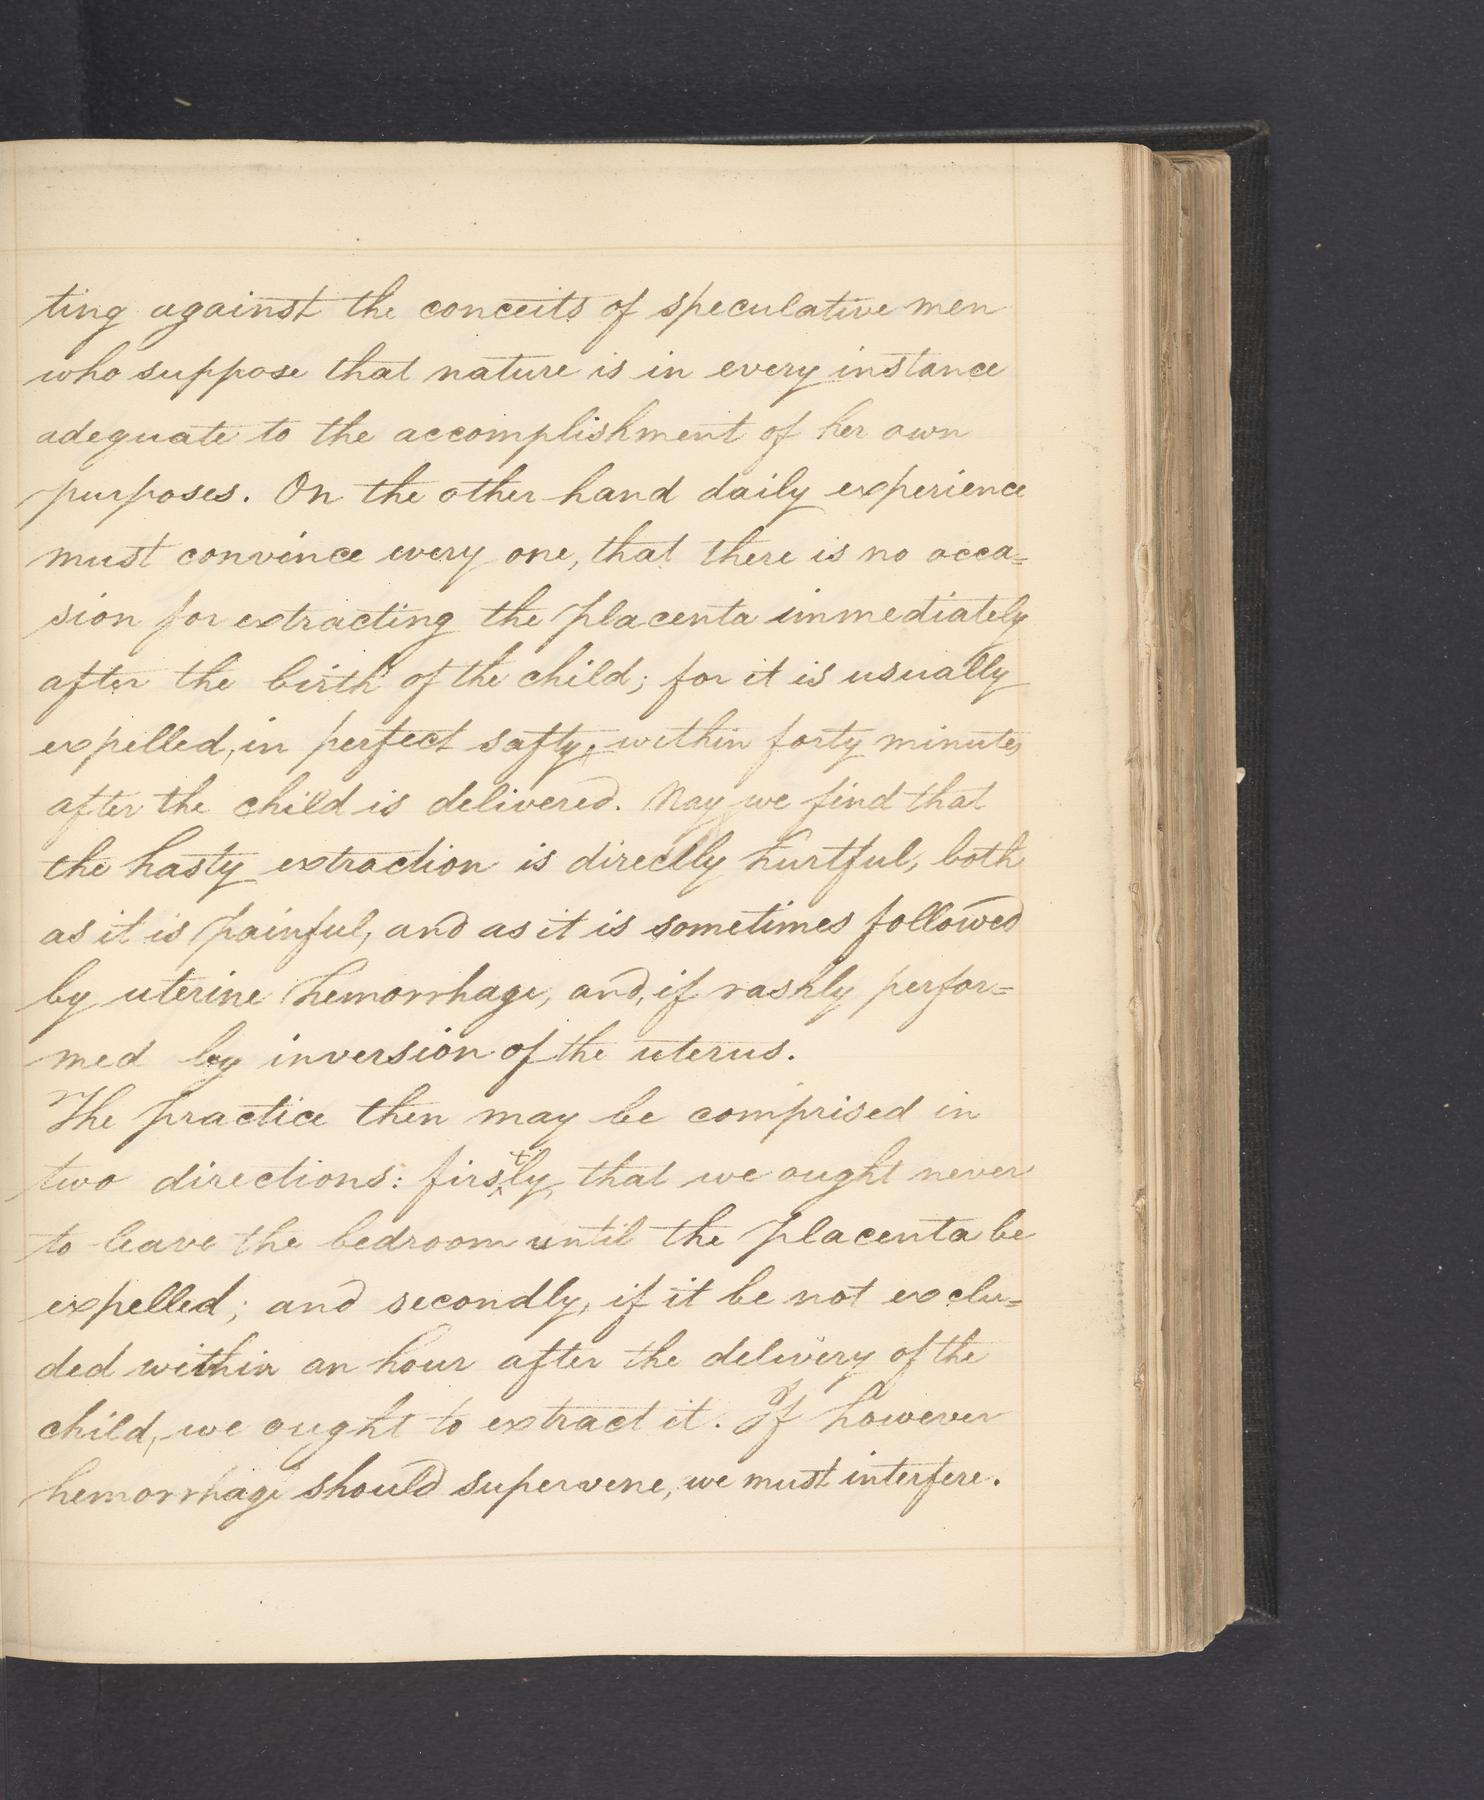 ting against the conceits of speculative men
who suppose that nature is in every instance
adequate to the accomplishment of her own
purposes. On the other hand daily experience
must convince every one, that there is no occa=
sion for extracting the placenta immediately
after the birth of the child; for it is usually
expelled, in perfect safty, within forty minutes
after the child is delivered. Nay we find that
the hasty extraction is directly hurtful, both
as it is painful, and as it is sometimes followed
by uterine hemorrhage, and, if rashly perfor=
med by inversion of the uterus.
The practice then may be comprised in
two directions: firstly, that we ought never
to leave the bedroom until the placenta be
expelled; and secondly, if it be not exclu=
ded within an hour after the delivery of the
child, we ought to extract it. If however
hemorrhage should supervene, we must interfere.